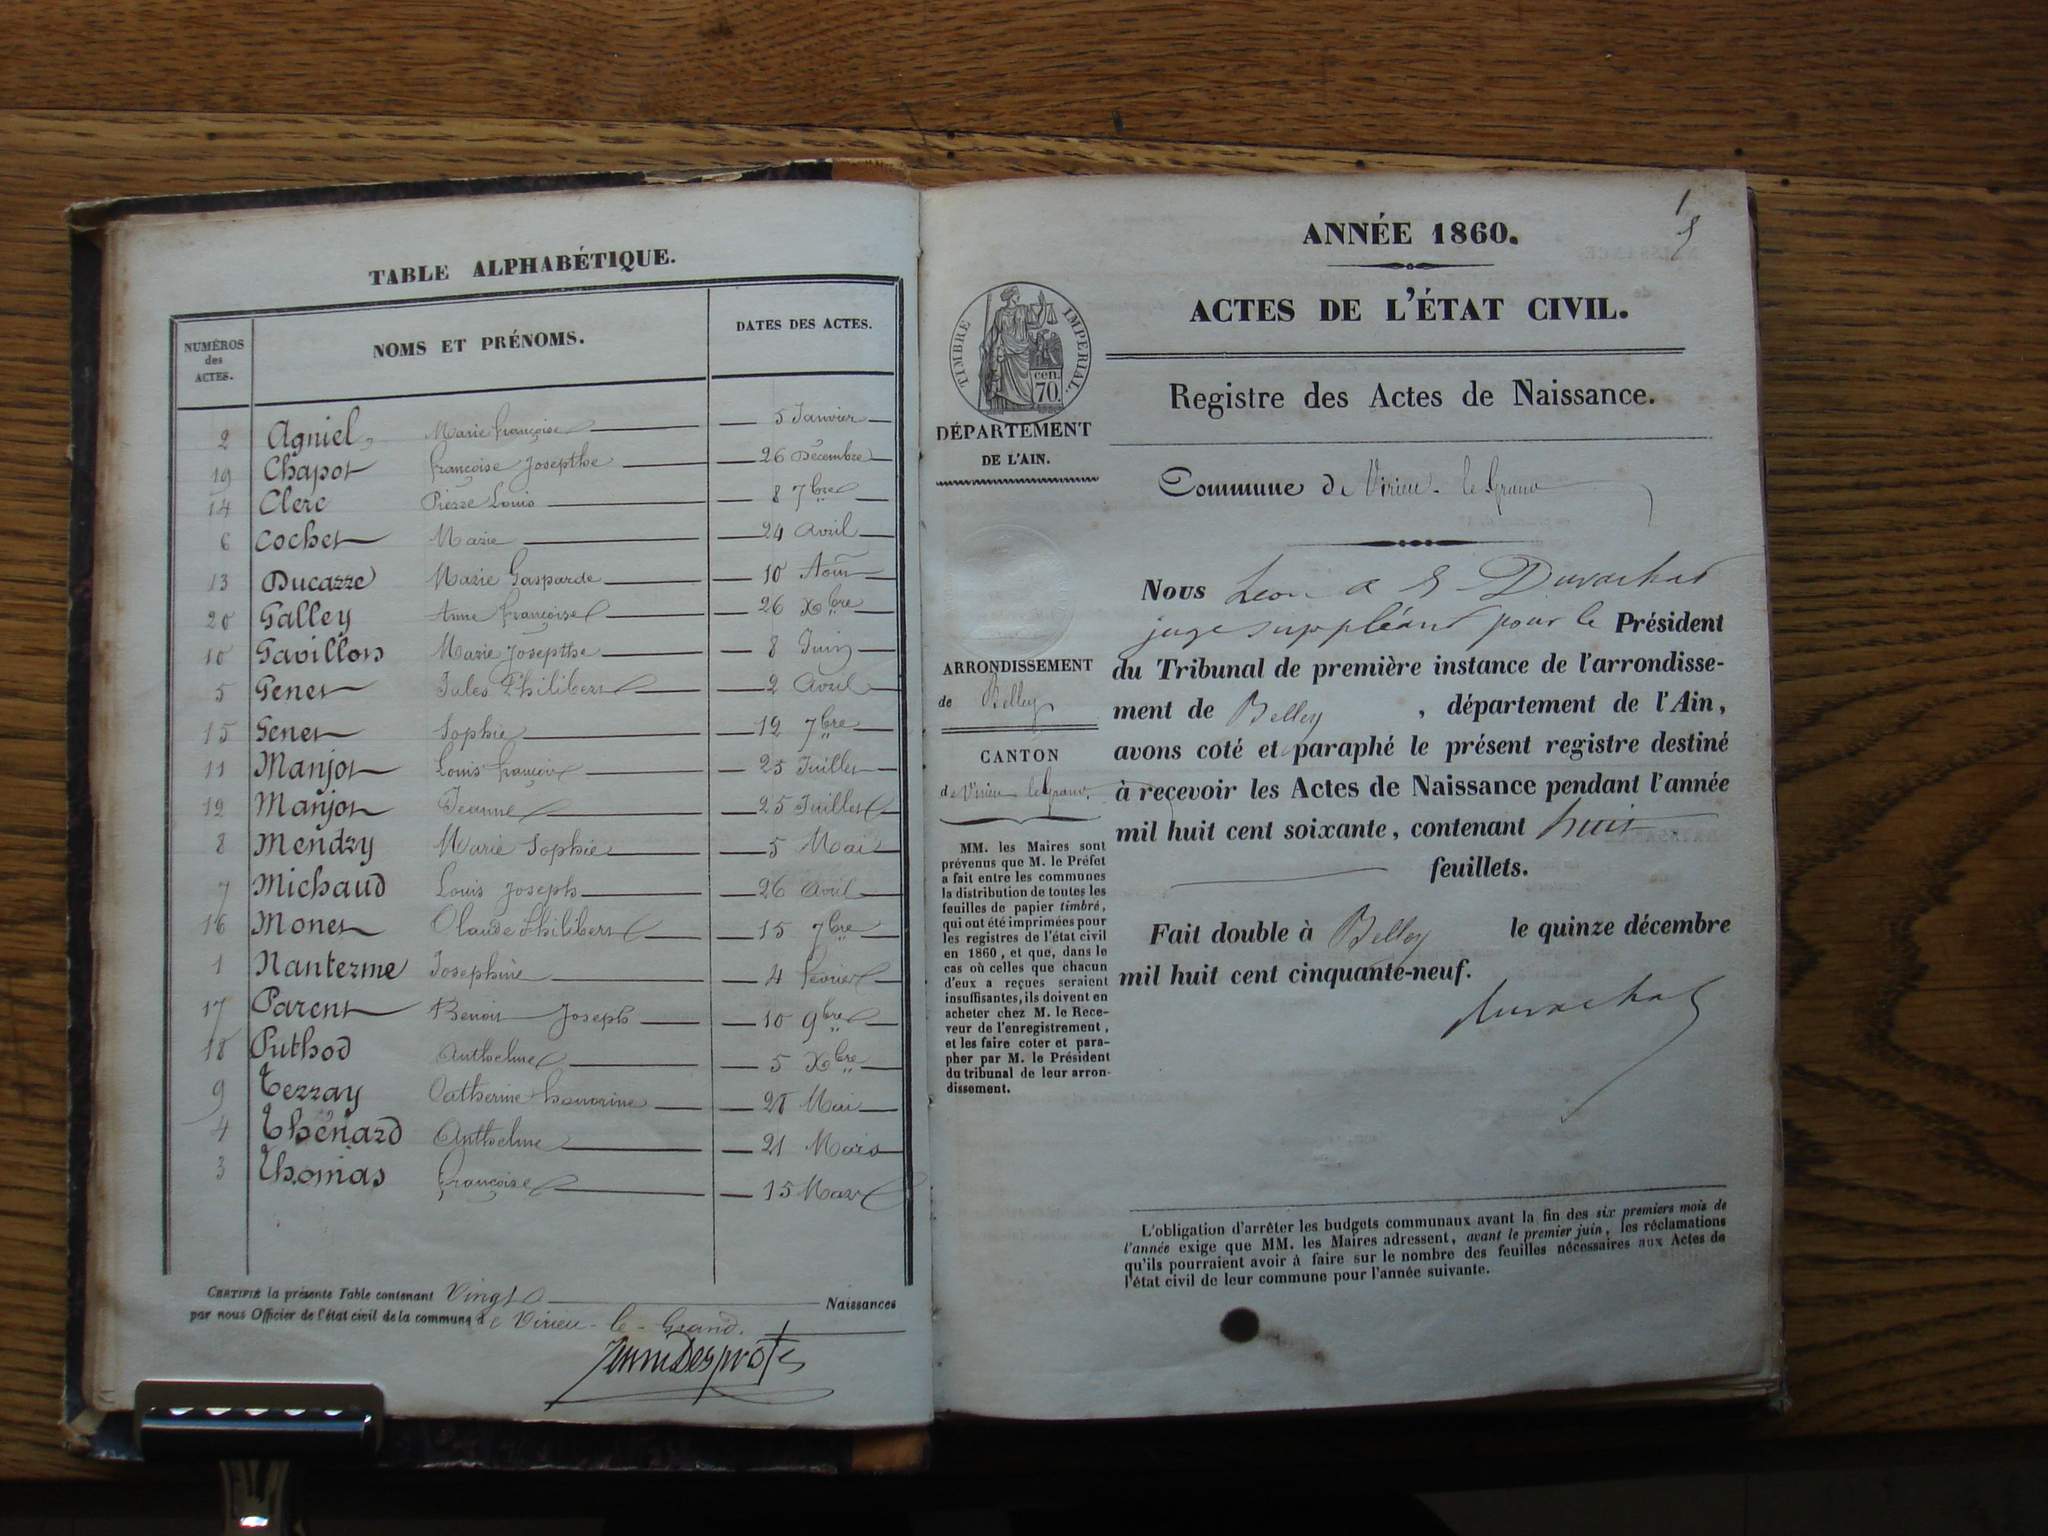 TABLE ALPHABÉTIQUE.
NUMÉROS des ACTES. NOMS ET PRÉNOMS. DATES DES ACTES.
2 Agniel Marie françoise 5 Janvier
19 Chapot françoise Josepthe 26 Décembre
14 Clerc Pierre Louis 8 7bre
6 Cochet Marie 24 Avril
13 Ducazze Marie Gasparde 10 Aout
20 Galley Anne françoise 26 Xbre
10 Gavillon Marie Josepthe 8 Juin
5 Genet Jules Philibert 2 Avril
15 Genet Sophie 12 7bre
11 Manjot Louis françois 25 Juillet
12 Manjot Jeanne 25 Juillet
8 Mendzy Marie Sophie 5 Mai
7 Michaud Louis Joseph 26 Avril
16 Monet Claude Philibert 15 7bre
1 Nanterme Josephine 4 fevrier
17 Parent Benoit Joseph 10 9bre
18 Puthod Anthelme 5 Xbre
9 Terray Catherine honorine 28 Mai
4 Thénard Anthelme 21 Mars
3 Thomas françoise 15 Mars
CERTIFIÉ la présente Table contenant Vingt Naissances
par nous Officier de l'état civil de la commune de Virieu-le-Grand.
1
ANNÉE 1860.
ACTES DE L'ÉTAT CIVIL.
TIMBRE IMPERIAL.
cen.
70.
Registre des Actes de Naissance.
DÉPARTEMENT
DE L'AIN.
Commune de Virieu-le Grand
Nous Leon Duvachat
juge suppléant pour le Président
du Tribunal de première instance de l'arrondisse-
ment de Belley, département de l'Ain,
avons coté et paraphé le présent registre destiné
à recevoir les Actes de Naissance pendant l'année
mil huit cent soixante, contenant huit
feuillets.
Fait double à Belley le quinze décembre
mil huit cent cinquante-neuf.
Duvachat
ARRONDISSEMENT
de Belley
CANTON
de Virieu le Grand.
MM. les Maires sont
prévenus que M. le Préfet
a fait entre les communes
la distribution de toutes les
feuilles de papier timbré,
qui ont été imprimées pour
les registres de l'état civil
en 1860, et que, dans le
cas où celles que chacun
d'eux a reçues seraient
insuffisantes, ils doivent en
acheter chez M. le Rece-
veur de l'enregistrement,
et les faire coter et para-
pher par M. le Président
du tribunal de leur arron-
dissement.
L'obligation d'arrêter les budgets communaux avant la fin des six premiers mois de
l'année exige que MM. les Maires adressent, avant le premier juin, les réclamations
qu'ils pourraient avoir à faire sur le nombre des feuilles nécessaires aux Actes de
l'état civil de leur commune pour l'année suivante.